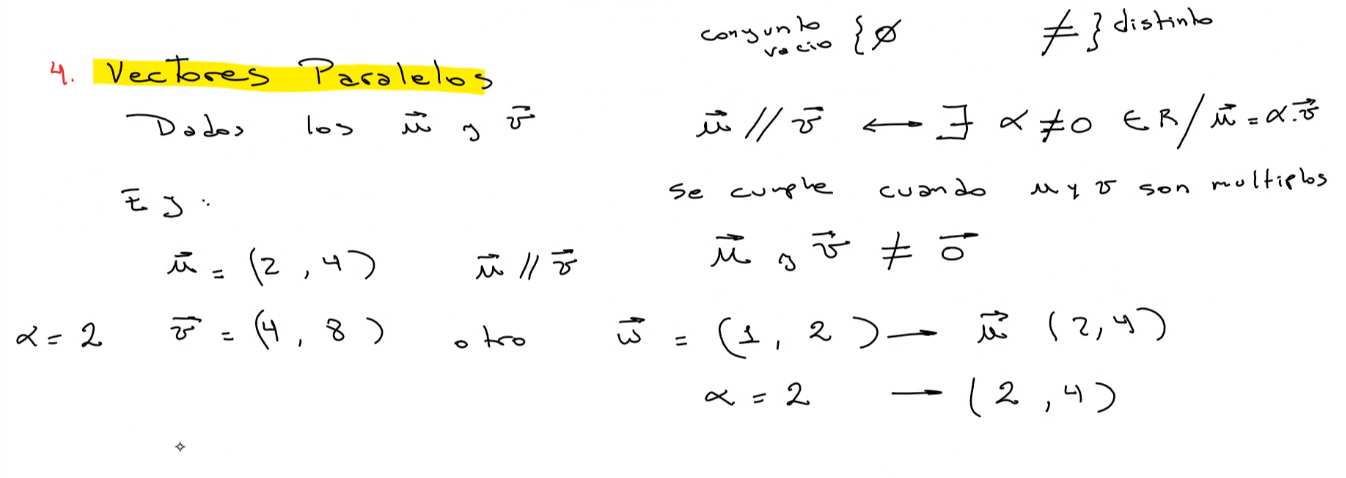 conjunto vacio { ∅ ≠ } distinto
4. Vectores Paralelos
Dados los u⃗ y v⃗ u⃗ // v⃗ ⟷ ∃ α ≠ 0 ∈ R / u⃗ = α.v⃗
Ej: se cumple cuando u y v son multiplos
u⃗ y v⃗ ≠ 0⃗
u⃗ = (2, 4) u⃗ // v⃗
α = 2 v⃗ = (4, 8) otro w⃗ = (1, 2) → u⃗ (2, 4)
α = 2 → (2, 4)